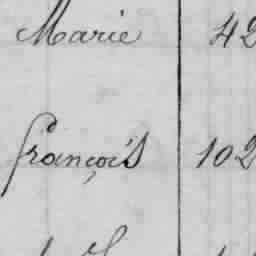 Marie 42
françois 102